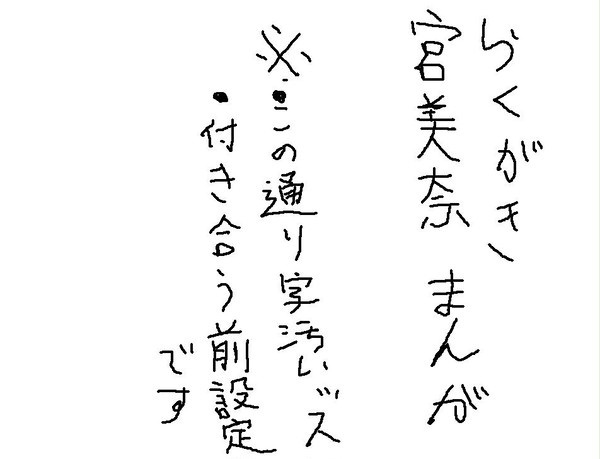 らくがき
宮美奈 まんが
※・この通り字汚いッス
・付き合う前設定
です